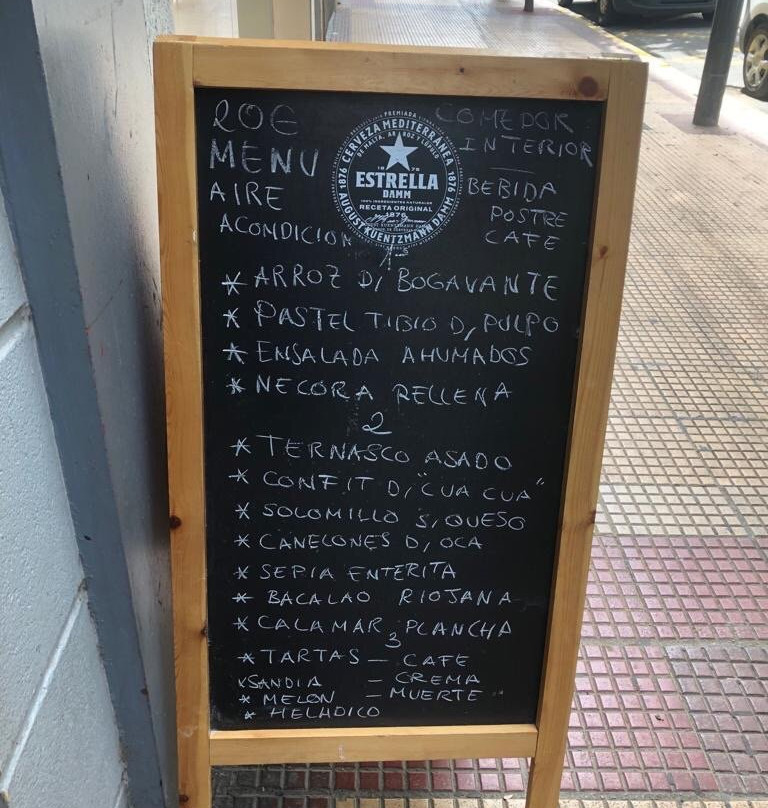 20€
MENU
AIRE
ACONDICION
PREMIADA
CERVEZA MEDITERRÁNEA
DE MALTA, ARROZ Y LÚPULO
1876
1876
ESTRELLA
DAMM
100% INGREDIENTES NATURALES
RECETA ORIGINAL
1876
AUGUST KUENTZMANN DAMM
COMEDOR
INTERIOR
BEBIDA
POSTRE
CAFE
* ARROZ D/ BOGAVANTE
* PASTEL TIBIO D, PULPO
* ENSALADA AHUMADOS
* NECORA RELLENA
2
* TERNASCO ASADO
* CONFIT D, "CUA CUA"
* SOLOMILLO S, QUESO
* CANELONES D, OCA
* SEPIA ENTERITA
* BACALAO RIOJANA
* CALAMAR PLANCHA
3
* TARTAS — CAFE
* SANDIA — CREMA
* MELON — MUERTE
* HELADICO